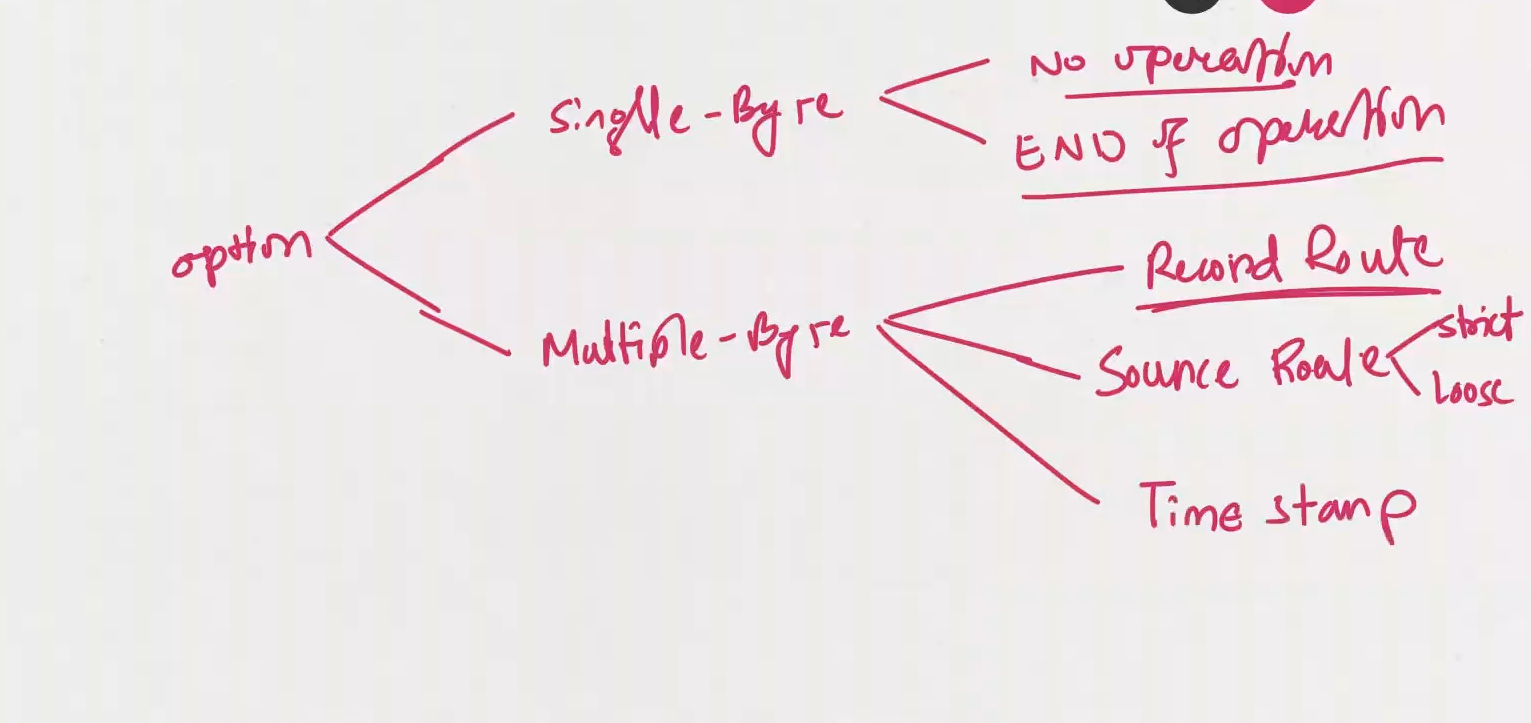 option
Single-Byte
No operation
END of operation
Multiple-Byte
Record Route
Source Route
strict
Loose
Time stamp